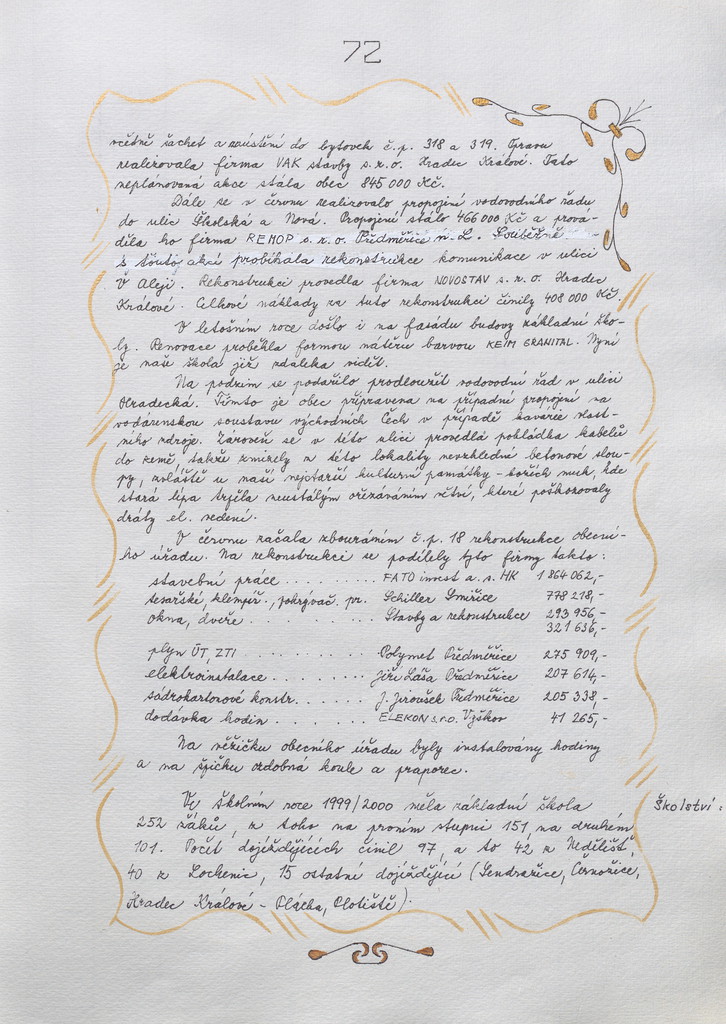 72
včetně šachet a vyústění do bytovek č.p. 318 a 319. Opravu
realizovala firma VAK stavby s.r.o. Hradec Králové. Tato
neplánovaná akce stála obec 845 000 Kč.
Dále se v červnu realizovalo propojení vodovodního řádu
do ulic Školská a Nová. Propojení stálo 466 000 Kč a prová-
děla ho firma REMOP s.r.o. Předměřice n. L. Souběžně
s touto akcí probíhala rekonstrukce komunikace v ulici
V Aleji. Rekonstrukci provedla firma NOVOSTAV s.r.o. Hradec
Králové. Celkové náklady za tuto rekonstrukci činily 408 000 Kč.
V letošním roce došlo i na fasádu budovy základní ško-
ly. Renovace proběhla formou nátěru barvou KEIM GRANITAL. Nyní
je naše škola již zdaleka vidět.
Na podzim se podařilo prodloužit vodovodní řád v ulici
Hradecká. Tímto je obec připravena na případní propojení na
vodárenskou soustavu východních Čech v případě havárie vlast-
ního zdroje. Zároveň se v této ulici provedla pokládka kabelů
do země, takže zmizely z této lokality nevzhledné betonové slou-
py, zvláště u naší nejstarší kulturní památky - božích muk, kde
stará lípa trpěla neustálým ořezáváním větví, které poškozovaly
dráty el. vedení.
V červnu začala zbouráním č.p. 18 rekonstrukce obecní-
ho úřadu. Na rekonstrukci se podílely tyto firmy takto:
stavební práce . . . . . . . . . FATO invest a. s. HK 1 864 062,-
tesařské, klempíř., pokrývač. pr. Schiller Smiřice 778 218,-
okna, dveře . . . . . . . . . Stavby a rekonstrukce 293 956,-
321 636,-
plyn ÚT, ZTI . . . . . . . . . Polymet Předměřice 275 909,-
elektroinstalace . . . . . . . . Jiří Láša Předměřice 207 614,-
sádrokartonové konstr. . . . . . J. Jiroušek Předměřice 205 338,-
dodávka hodin . . . . . . ELEKON s.r.o. Vyškov 41 265,-
Na věžičku obecního úřadu byly instalovány hodiny
a na špičku ozdobná koule a praporec.
Školství:
Ve školním roce 1999/2000 měla základní škola
252 žáků, z toho na prvním stupni 151, na druhém
101. Počet dojíždějících činil 97, a to 42 z Nedělišť,
40 z Lochenic, 15 ostatní dojíždějící (Sendražice, Černožice,
Hradec Králové - Plácka, Plotiště).